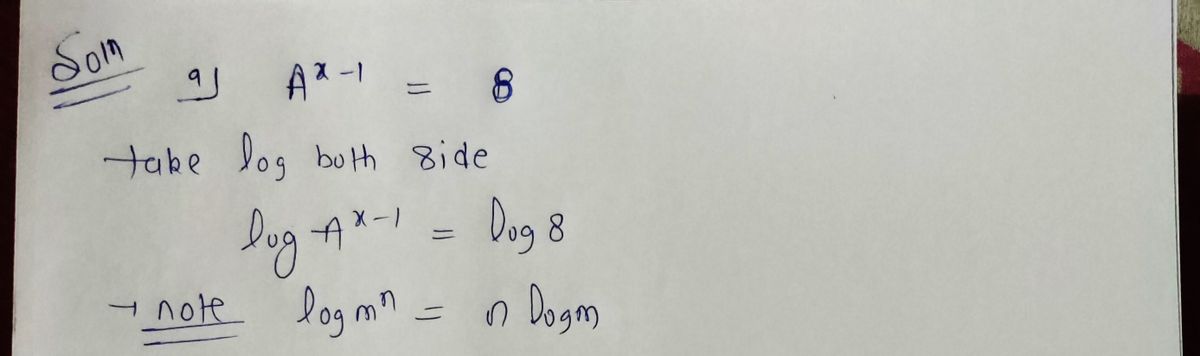 Soln a) A^x-1 = 8
take log both side
log A^x-1 = log 8
→ note log m^n = n log m